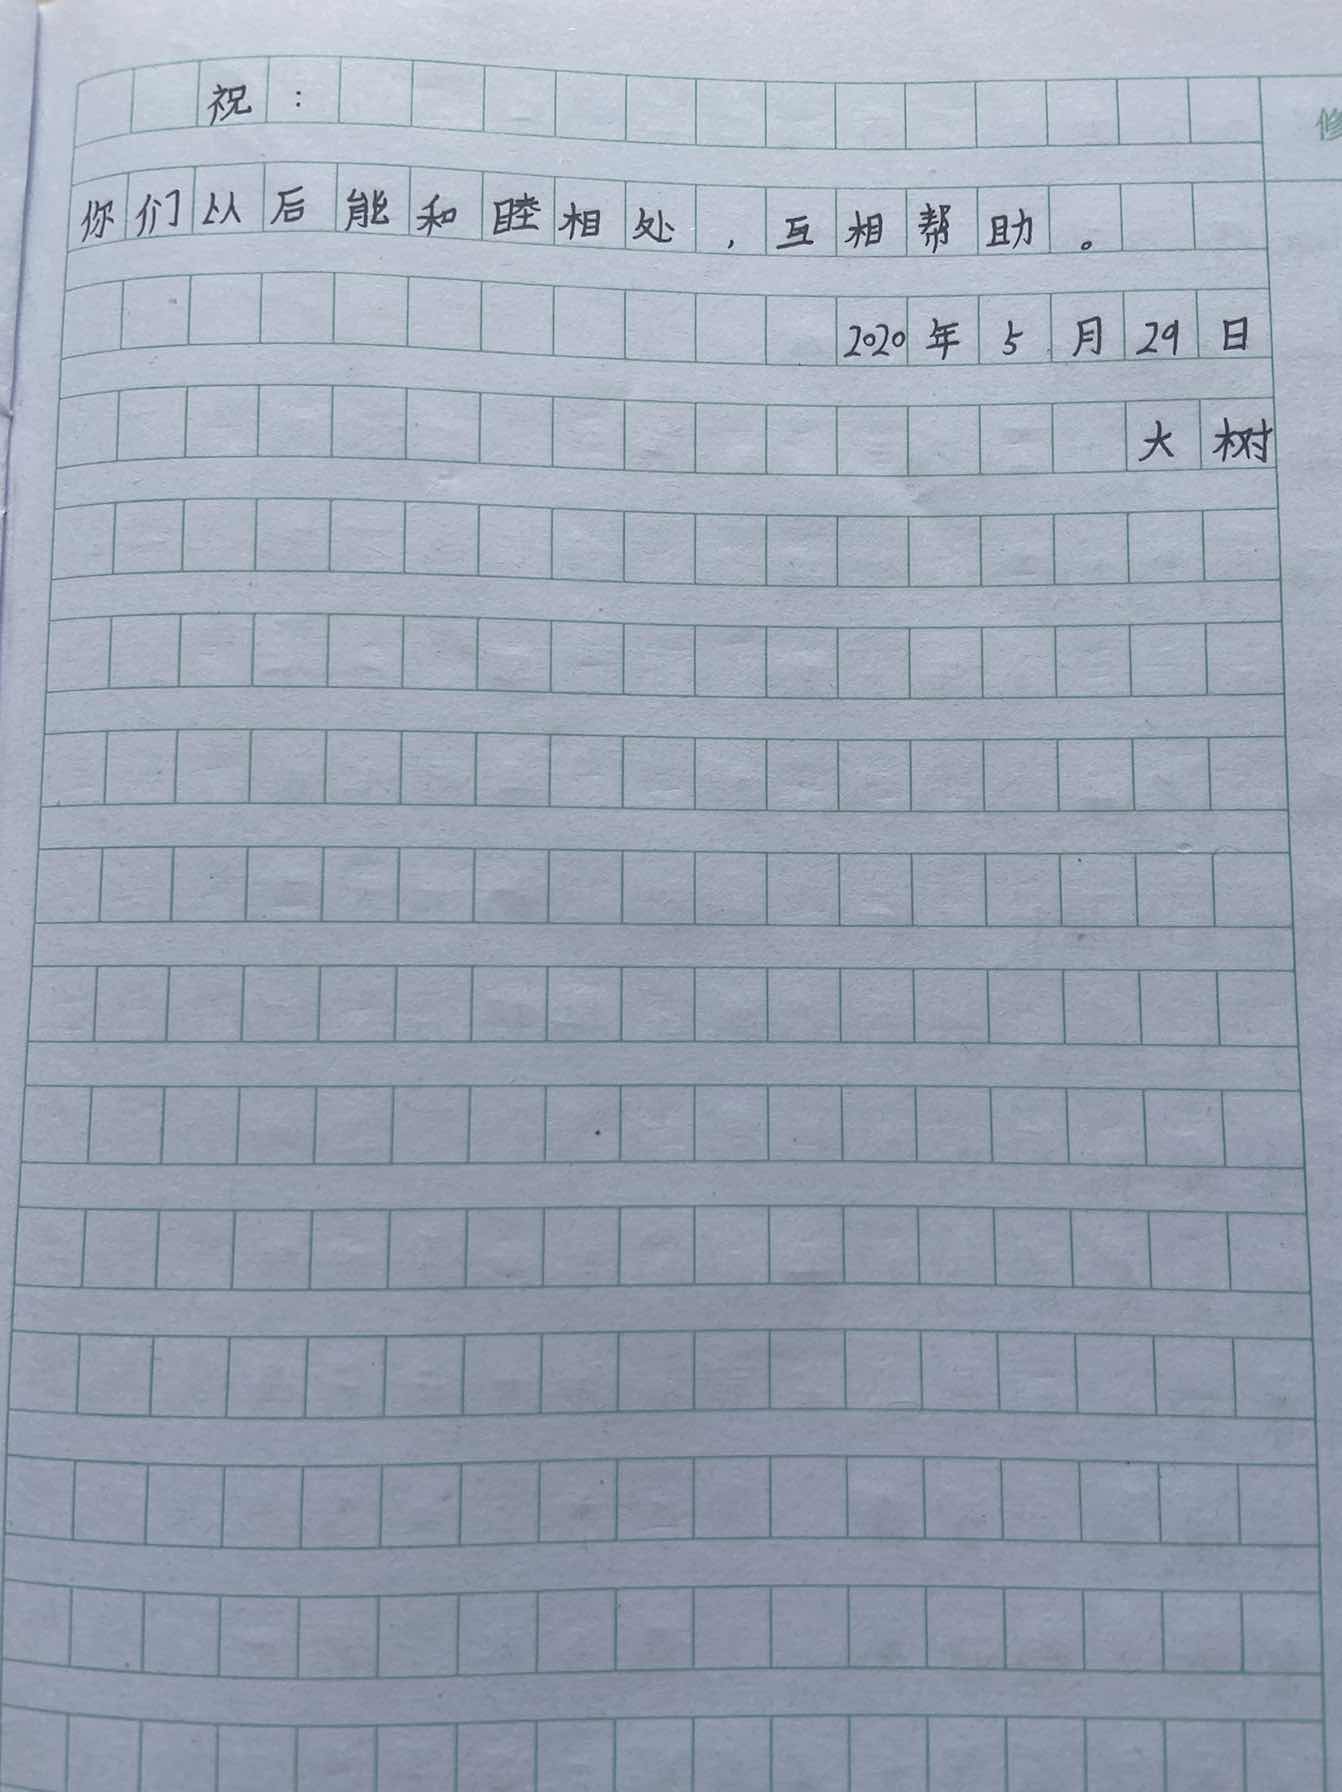 祝：
你们以后能和睦相处，互相帮助。
2020年5月29日
大树